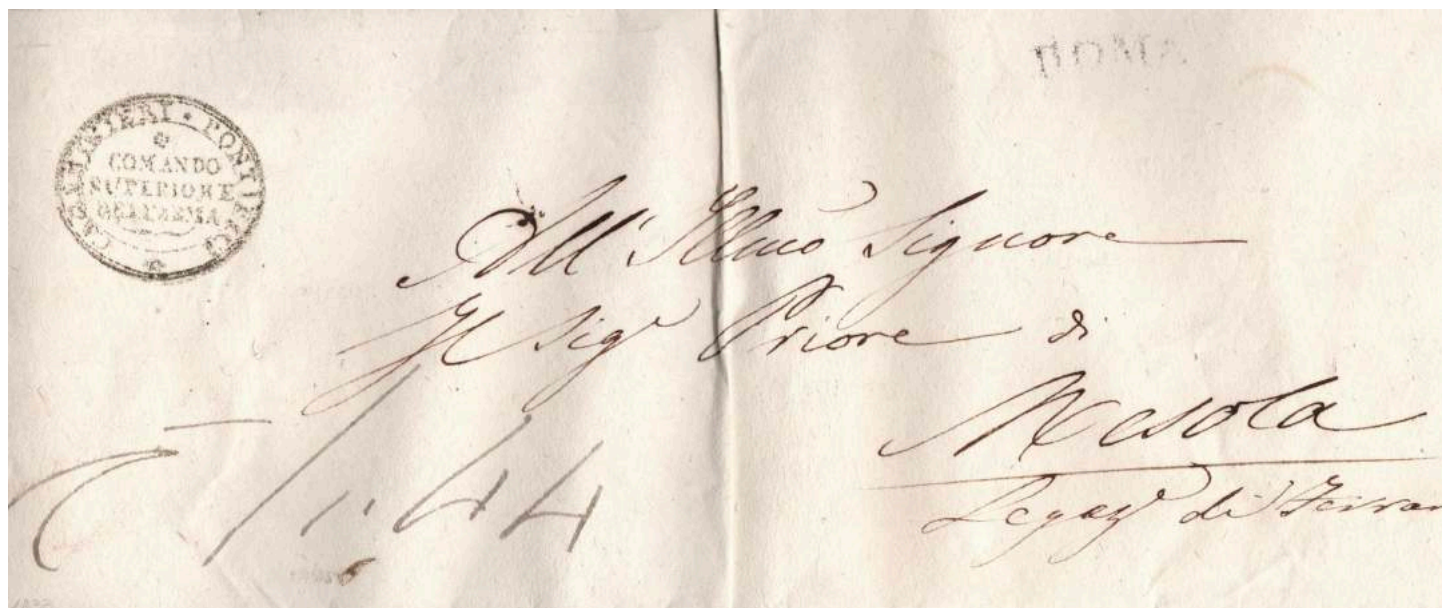 ROMA
CARABINIERI · PONTIFICI
COMANDO
SUPERIORE
DELL'ARMA
All' Illmo Signore
Il Sigr Priore di
Mesola
Legaze di Ferrar
1:44